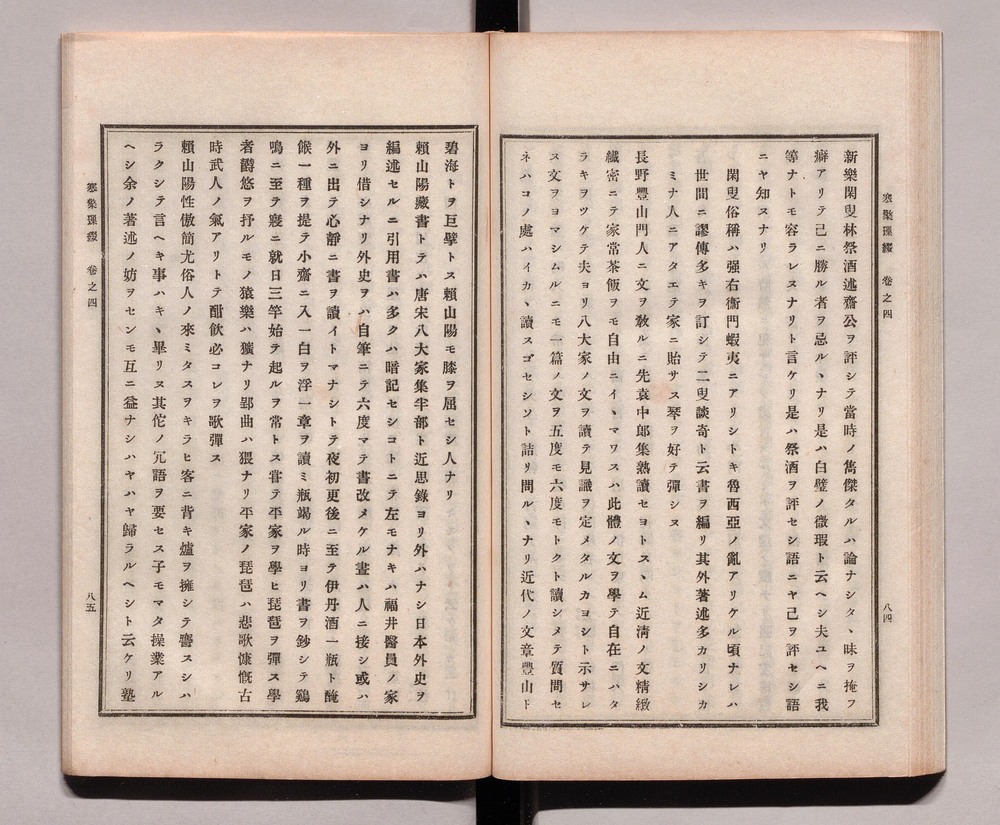 寒檠璅綴 卷之四
八四
新樂閑叟林祭酒述齋公ヲ評シテ當時ノ雋傑タルハ論ナシタヽ味ヲ掩フ
癖アリテ己ニ勝ル者ヲ忌ルヽナリ是ハ白璧ノ微瑕ト云ヘシ夫ユヘニ我
等ナトモ容ラレスナリト言ケリ是ハ祭酒ヲ評セシ語ニヤ己ヲ評セシ語
ニヤ知スナリ
閑叟俗稱ハ强右衞門蝦夷ニアリシトキ魯西亞ノ亂アリケル頃ナレハ
世間ニ謬傳多キヲ訂シテ二叟談奇ト云書ヲ編リ其外著述多カリシカ
ミナ人ニアタエテ家ニ貽サス琴ヲ好テ彈シヌ
長野豐山門人ニ文ヲ敎ルニ先袁中郞集熟讀セヨトスヽム近淸ノ文精緻
纎密ニテ家常茶飯ヲモ自由ニイヽマワスハ此體ノ文ヲ學テ自在ニハタ
ラキヲツケテ夫ヨリ八大家ノ文ヲ讀テ見識ヲ定メタルカヨシト示サレ
ス文ヲヨマシムルニモ一篇ノ文ヲ五度モ六度モトクト讀シメテ質問セ
ネハコノ處ハイカヽ讀スゴセシソト詰リ問ルヽナリ近代ノ文章豐山ト
碧海トヲ巨擘トス賴山陽モ膝ヲ屈セシ人ナリ
賴山陽藏書トテハ唐宋八大家集半部ト近思錄ヨリ外ハナシ日本外史ヲ
編述セルニ引用書ハ多クハ暗記セシコトニテ左モナキハ福井醫員ノ家
ヨリ借シナリ外史ヲハ自筆ニテ六度マテ書改メケル晝ハ人ニ接シ或ハ
外ニ出テ心靜ニ書ヲ讀イトマナシトテ夜初更後ニ至テ伊丹酒一瓶ト醃
餱一種ヲ提テ小齋ニ入一白ヲ浮一章ヲ讀ミ瓶竭ル時ヨリ書ヲ鈔シテ鷄
鳴ニ至テ寢ニ就日三竿始テ起ルヲ常トス嘗テ平家ヲ學ヒ琵琶ヲ彈ス學
者欝悠ヲ抒ルモノ猿樂ハ獷ナリ郢曲ハ猥ナリ平家ノ琵琶ハ悲歌慷慨古
時武人ノ氣アリトテ酣飮必コレヲ歌彈ス
賴山陽性傲簡尤俗人ノ來ミタスヲキラヒ客ニ背キ爐ヲ擁シテ譍スシハ
ラクシテ言ヘキ事ハキヽ畢リヌ其佗ノ冗語ヲ要セス子モマタ操業アル
ヘシ余ノ著述ノ妨ヲセンモ互ニ益ナシハヤハヤ歸ラルヘシト云ケリ塾
寒檠璅綴 卷之四
八五